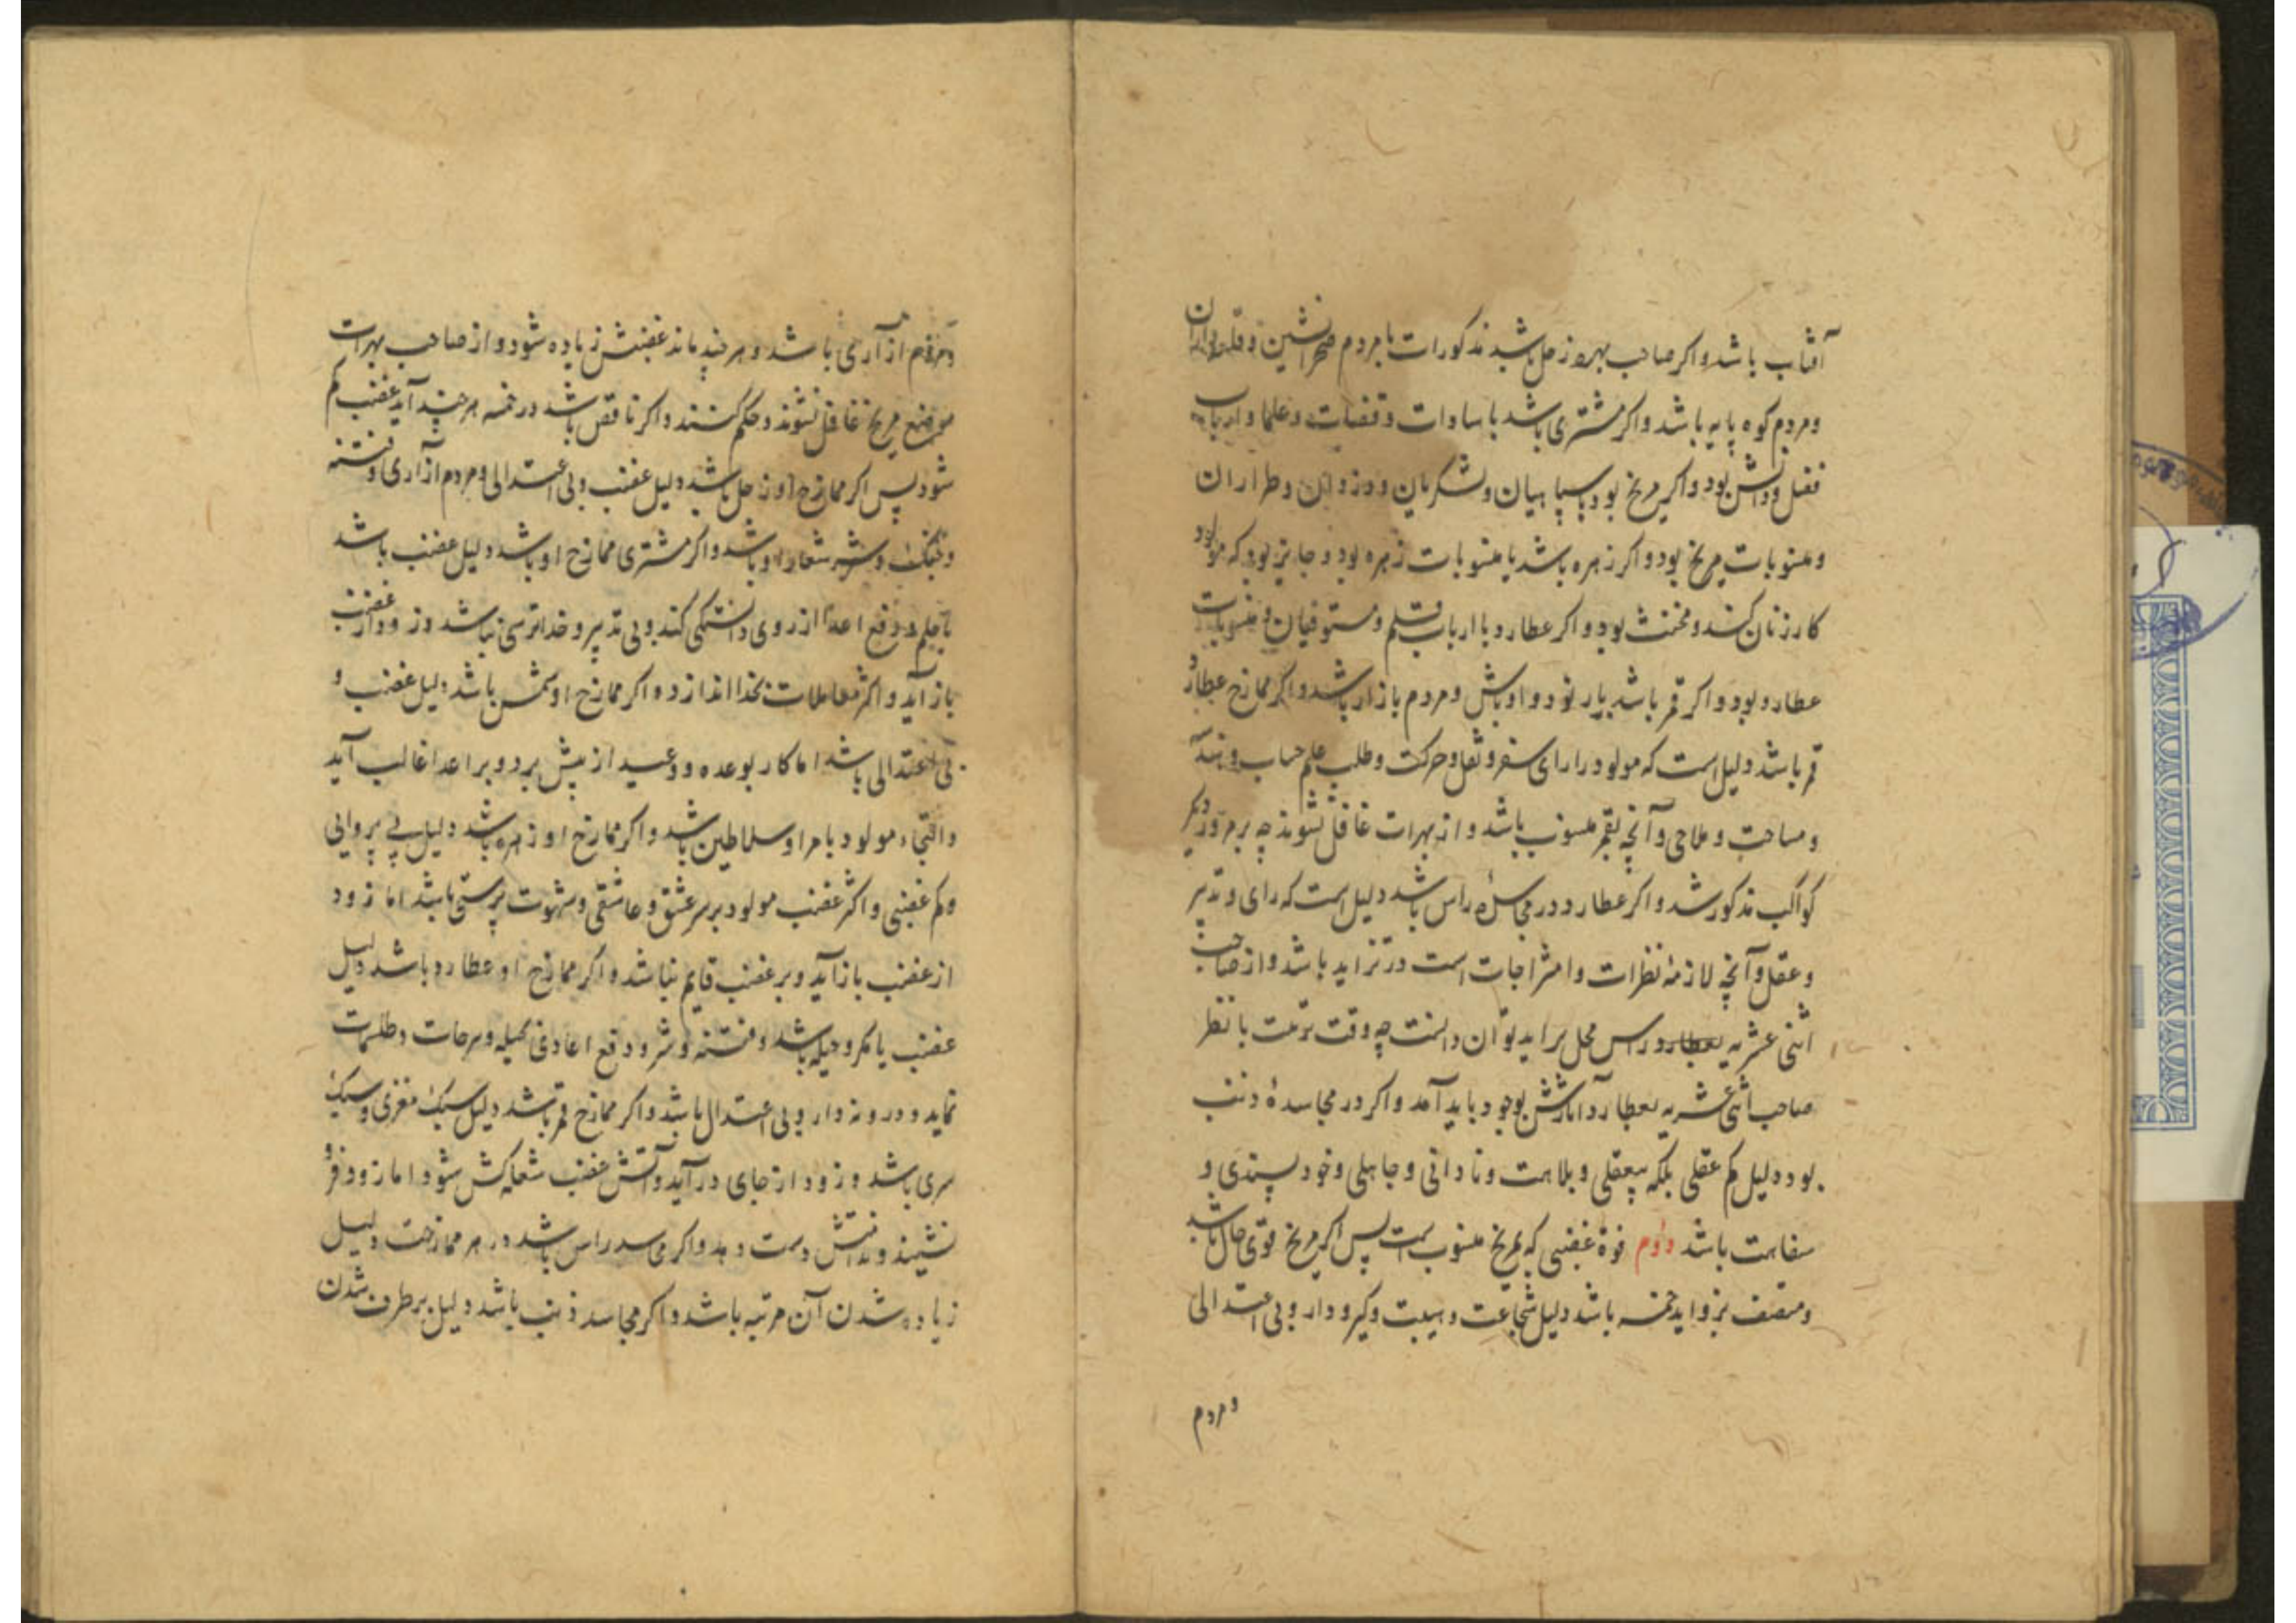 آفتاب باشد و اکر صاحب بهره زحل باشد مذکورات با مردم صحرانشین و قلعه داران
و مردم کوه پایه باشد و اکر مشتری باشد با سادات و قضات و علما و ارباب
فضل و دانش بود و اکر مریخ بود با سپاهیان و لشکریان و دزدان و طراران
و منسوبات مریخ بود و اکر زهره باشد با منسوبات زهره بود و جایز بود که مولود
کار زنان کند و مخنث بود و اکر عطارد با ارباب قلم و مستوفیان و منسوبات
عطارد بود و اکر قمر باشد با رنود و اوباش و مردم بازار باشد و اکر ممازج عطارد
قمر باشد دلیل است که مولود را رای سفر و نقل و حرکت و طلب علم حساب و هندسه
و مساحت و ملاحی و آنچه بقمر منسوب باشد و از بهرات غافل نشوند چه بر مرور دیگر
کواکب مذکور شد و اکر عطارد در مجاسدهٔ راس باشد دلیل است که رای و تدبیر
و عقل و آنچه لازمهٔ نظرات و امتزاجات است در تزاید باشد و از صاحب
اثنی عشریه بعطارد راس محل براید توان دانست چه وقت تربت با نظر
صاحب اثنی عشریه بعطارد آثارش بوجود باید آمد و اکر در مجاسدهٔ ذنب
بود دلیل کم عقلی بلکه بیعقلی و بلاهت و نادانی و جاهلی و خود پسندی و
سفاهت باشد دوم قوهٔ غضبی که بمریخ منسوب است پس اکر مریخ قوی حال باشد
و متصف بزواید خمسه باشد دلیل شجاعت و هیبت و کیر و دار و بی اعتدالی
و مردم
و مردم ازآری باشد و هر چند ماند غضبش زیاده شود و از صاحب بهرات
موضع مریخ غافل نشوند و حکم کنند و اکر ناقص باشد در خمسه هر چند آید غضب کم
شود پس اکر ممازج او زحل باشد دلیل غضب و بی اعتدالی و مردم ازآری و فتنه
و جنک و شر شعار او باشد و اکر مشتری ممازج او باشد دلیل غضب باشد
با حلم و دفع اعدا از روی دانستکی کند و بی تدبیر و خداترسی نباشد و زود از غضب
باز آید و اکثر معاملات بخدا اندازد و اکر ممازج او شمس باشد دلیل غضب و
بی اعتدالی باشد اما کار بوعده و وعید از پیش برد و بر اعدا غالب آید
و التجاء مولود بامرا و سلاطین باشد و اکر ممازج او زهره باشد دلیل بی پروایی
و کم غضبی و اکثر غضب مولود بر سر عشق و عاشقی و شهوت پرستی باشد اما زود
از غضب باز آید و بر غضب قایم نباشد و اکر ممازج او عطارد باشد دلیل
غضب با مکر و حیله باشد و فتنه و شر و دفع اعادی بحیله و سرحات و طلسمات
نماید و درونه دار و بی اعتدال باشد و اکر ممازج قمر باشد دلیل سبک مغزی و سبک
سری باشد و زود از جای درآید و آتش غضب شعله کش شود اما زود فرو
نشیند و ندامتش دست دهد و اکر مجاسد راس باشد در هر ممازجت دلیل
زیاده شدن آن مرتبه باشد و اکر مجاسد ذنب باشد دلیل برطرف شدن